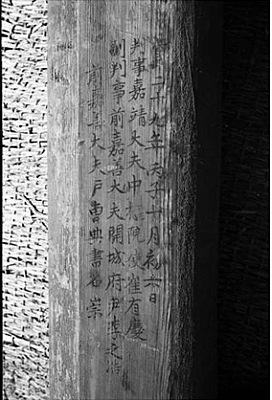 二十九年丙子十月初六日
判事嘉靖大夫中樞院使崔有慶
副判事前嘉善大夫開城府尹李
前 大夫戶曹典書 崇